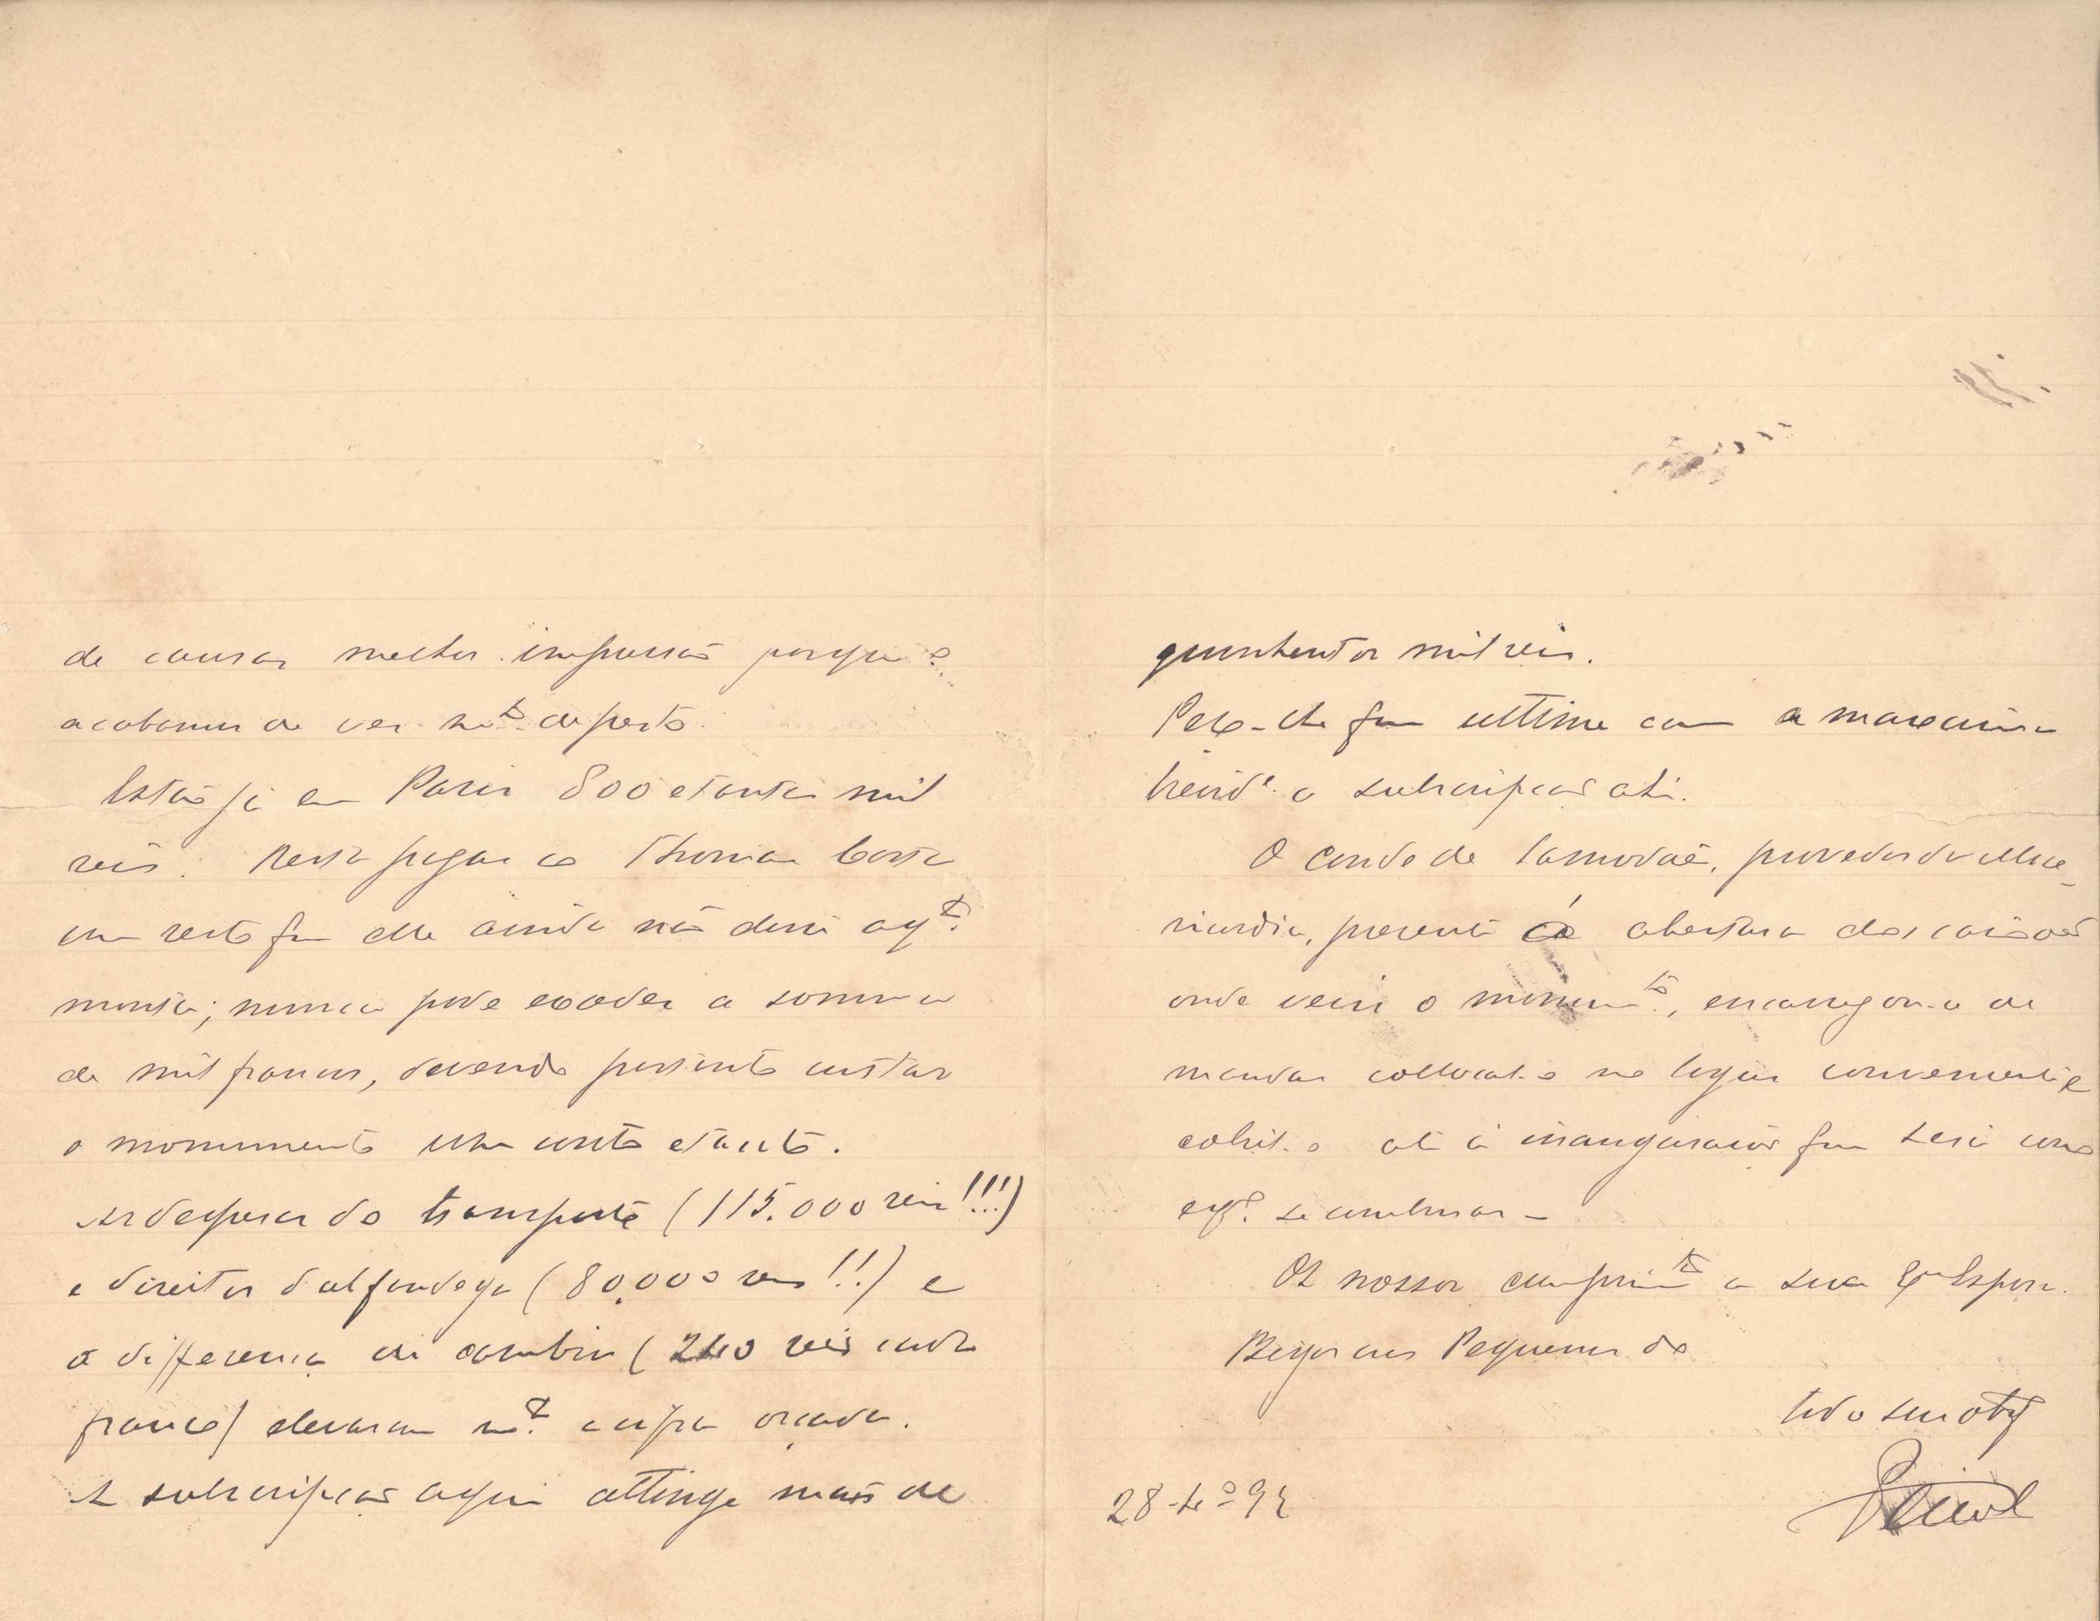 de causar melhor impressão porque o
acabamos de ver m.to de perto.
Estão já em Paris 800 e tantos mil
reis. Resta pagar ao Thomaz Costa
um resto que elle ainda não disse a q.to
monta; nunca pode exceder a somma
de mil francos, devendo portanto custar
o monumento um conto e tanto.
As despesas do transporte (115.000 reis!!!)
e direitos d'alfandega (80.000 reis!!) e
a differença de cambio (240 reis cada
franco) elevaram m.to a orçada.
A subscripção aqui attinge mais de
quinhentos mil reis.
Peço-lhe que ultime com a maxima
brevid.e a subscripção ahi.
O Conde de Samodães, provedor da Mise-
ricordia, presente á abertura dos caixões
onde veiu o monum.to, encarregou-se de
mandar collocal-o no logar conveniente e
cobril-o até á inauguração que será como
ahi se combinar —
Os nossos cumprim.tos a sua Ex.ma Esposa.
Beijos aos Pequenos do
todo seu obg.
28-4.º-94